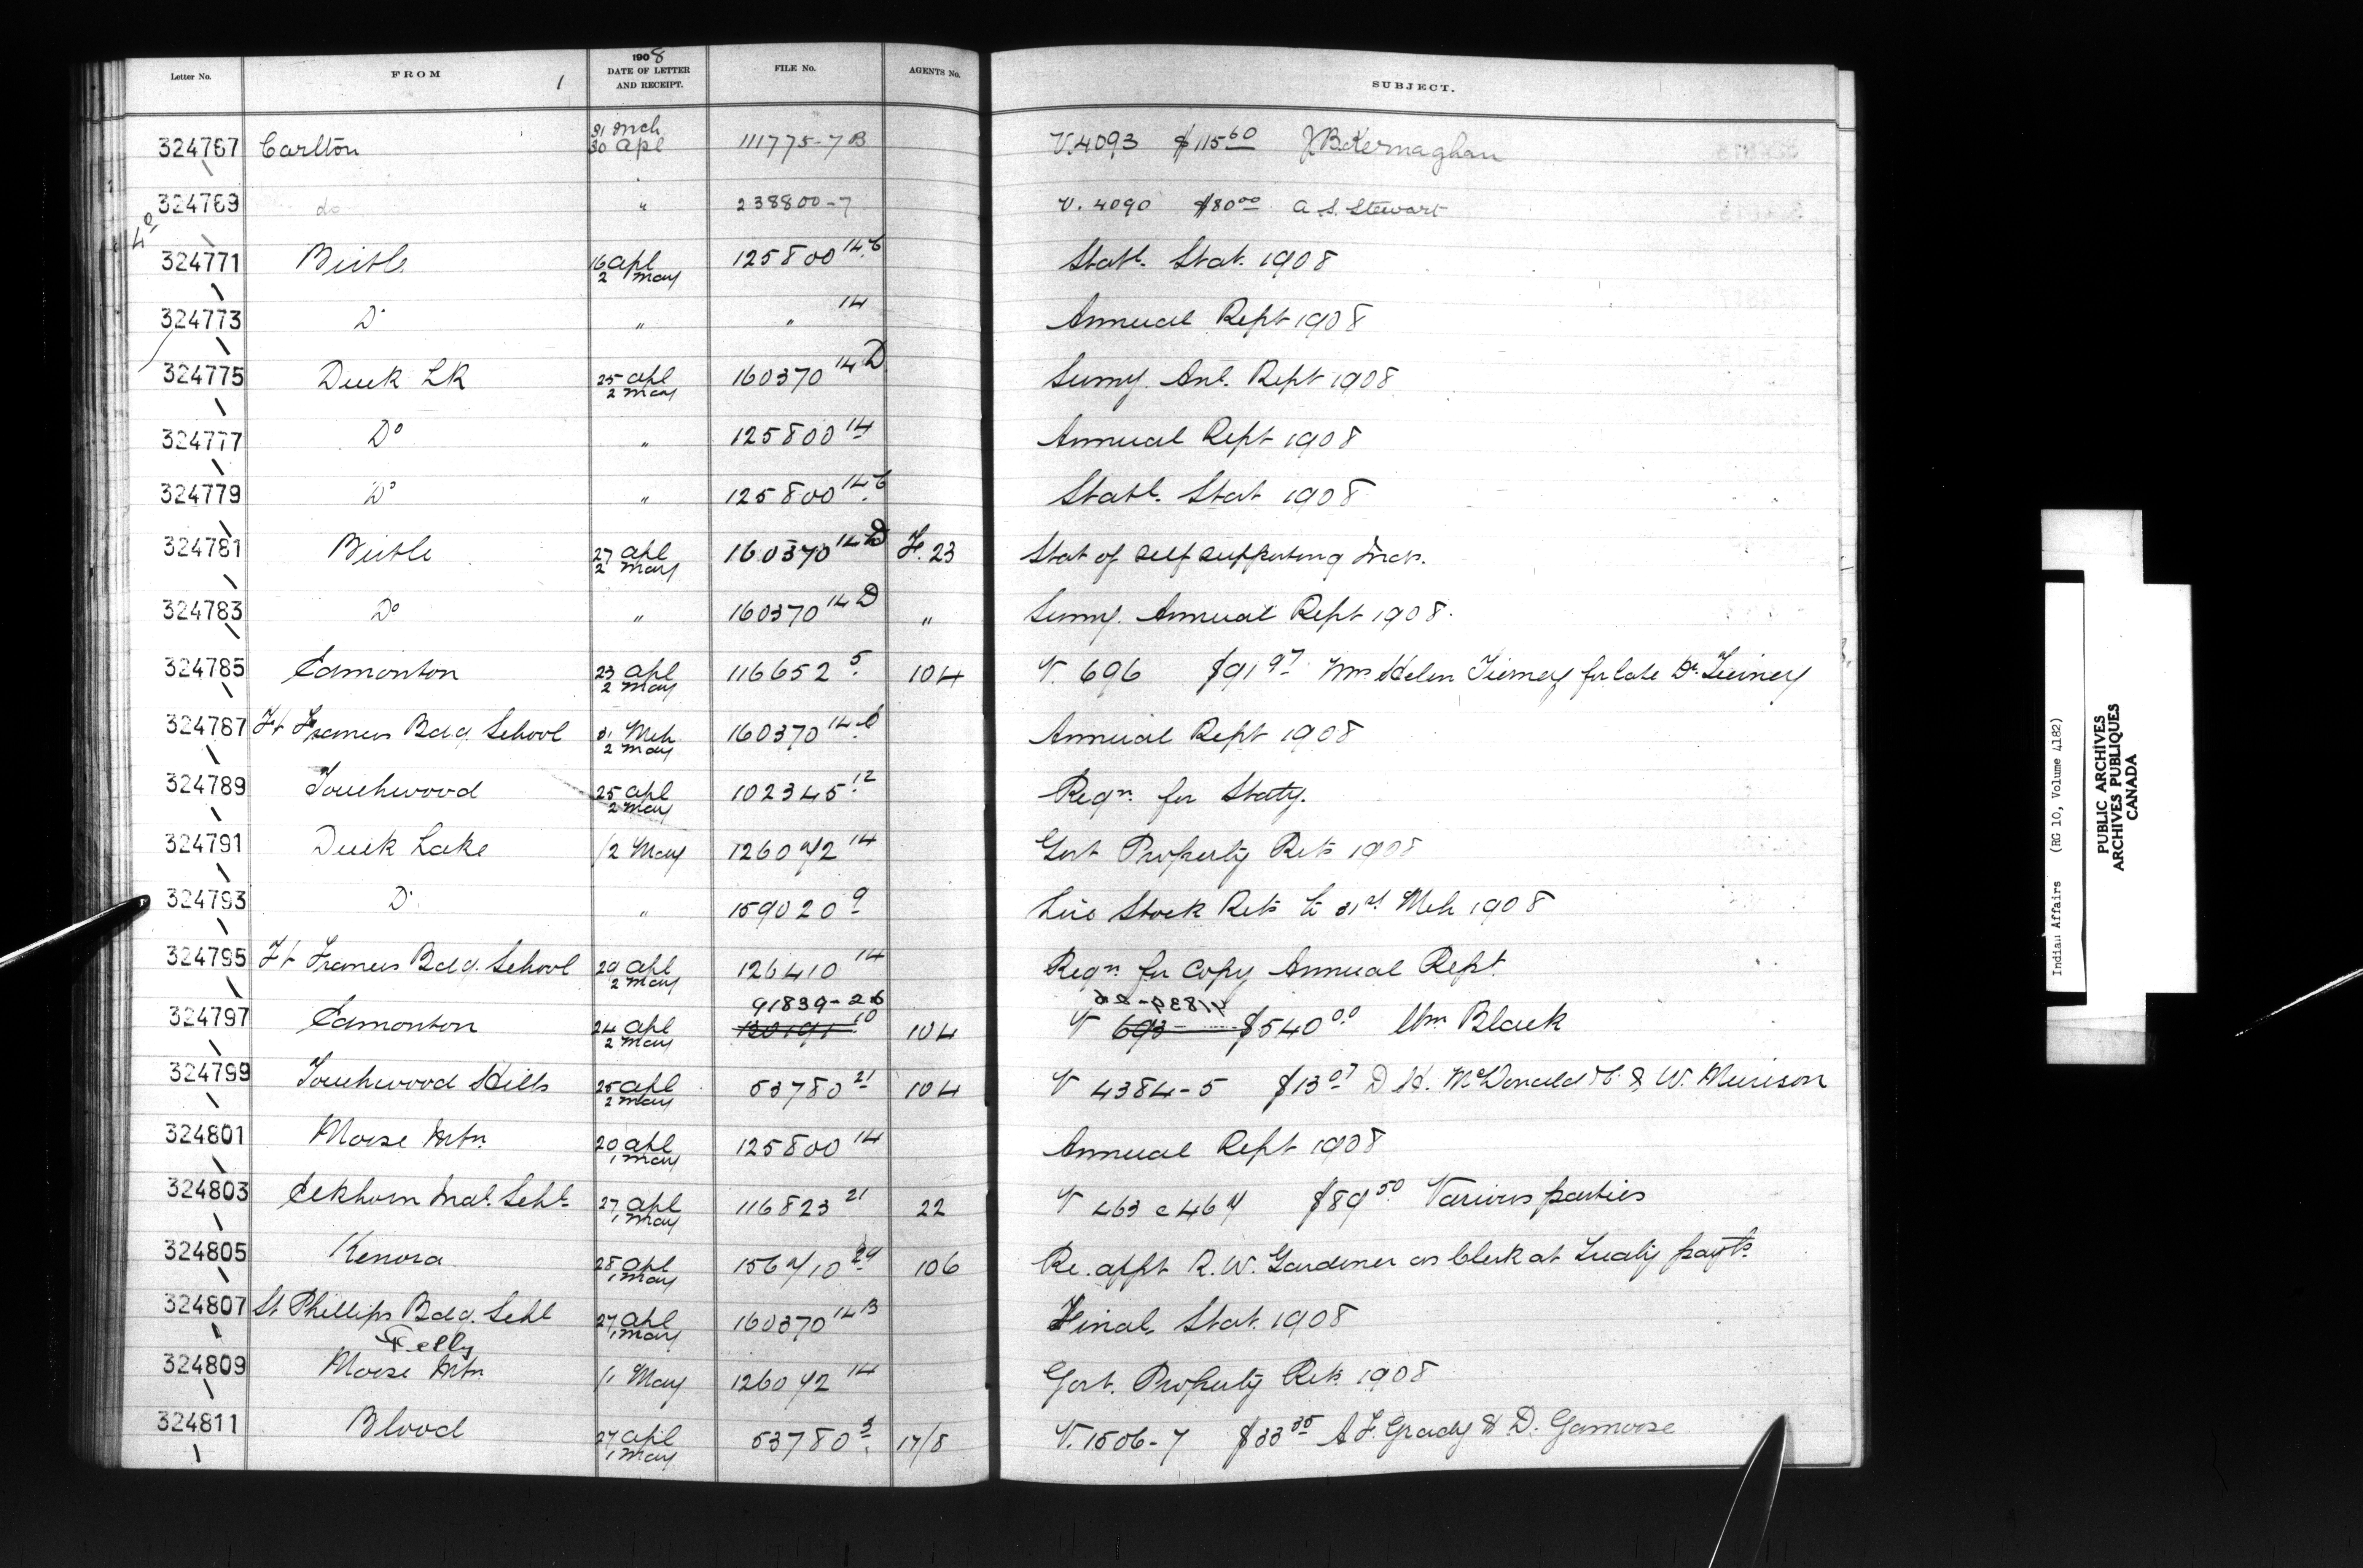 Letter No. FROM 1 1908 DATE OF LETTER AND RECEIPT. FILE No. AGENTS No. SUBJECT.
324767 Carlton 31 Mch 30 Apl 111775-7B V.4093 $115 60 J.B. Kernaghan
324769 do " 238800-7 V. 4090 $80 00 A. S. Stewart
324771 Birtle 16 Apl 2 May 125800 14.C Statl. Stat. 1908
324773 Do " " 14 Annual Rept 1908
324775 Duck LK 25 Apl 2 May 160370 14 D Sumy. Anl. Rept 1908
324777 Do " 125800 14 Annual Rept 1908
324779 Do " 125800 14.C Statl. Stat 1908
324781 Birtle 27 Apl 2 May 160370 14 D F. 23 Stat of self supporting Inds.
324783 Do " 160370 14 D " Sumy. Annual Rept 1908.
324785 Edmonton 23 Apl 2 May 116652 5 104 V. 696 $91 97 Mrs Helen Tierney for late Dr. Tierney
324787 Ft Frances Bdg. School 31 Mch 2 May 160370 14 Annual Rept 1908
324789 Touchwood 25 Apl 2 May 102345 12 Reqn. for Staty.
324791 Duck Lake 1/2 May 126072 14 Govt Property Retn 1908
324793 Do " 159020 9 Live Stock Retn to 31st Mch 1908
324795 Ft Frances Bdg. School 29 Apl 2 May 126410 14 Reqn. for copy Annual Rept.
91839-26
324797 Edmonton 24 Apl 2 May 130191 10 104 V 693 $540 00 Wm Black
324799 Touchwood Hills 25 Apl 2 May 53780 21 104 V 4384-5 $13 07 D H. McDonald & W. Murison
324801 Moose Mtn. 20 Apl 1 May 125800 14 Annual Rept 1908
324803 Elkhorn Indl. Schl. 27 Apl 1 May 116823 21 22 V 463 & 467 $89 50 Various parties
324805 Kenora 28 Apl 1 May 156710 29 106 Re. appt R. W. Gardener as Clerk at Treaty payts.
324807 St Phillips Bdg. Schl 27 Apl 1 May 160370 14 B Final. Stat. 1908
Pelly
324809 Moose Mtn 1/1 May 126072 14 Govt. Property Retn 1908
324811 Blood 27 Apl 1 May 53780 3 17/8 V. 1506-7 $33 35 A. F. Grady & D. Gamoose
Indian Affairs (RG 10, Volume 4182)
PUBLIC ARCHIVES
ARCHIVES PUBLIQUES
CANADA